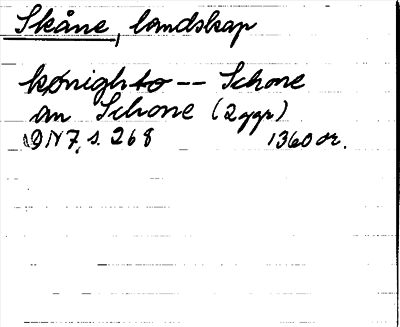 Skåne, landskap
konighto -- Schone
an Schone (2 ggr)
DN7, s. 268 1360 or.